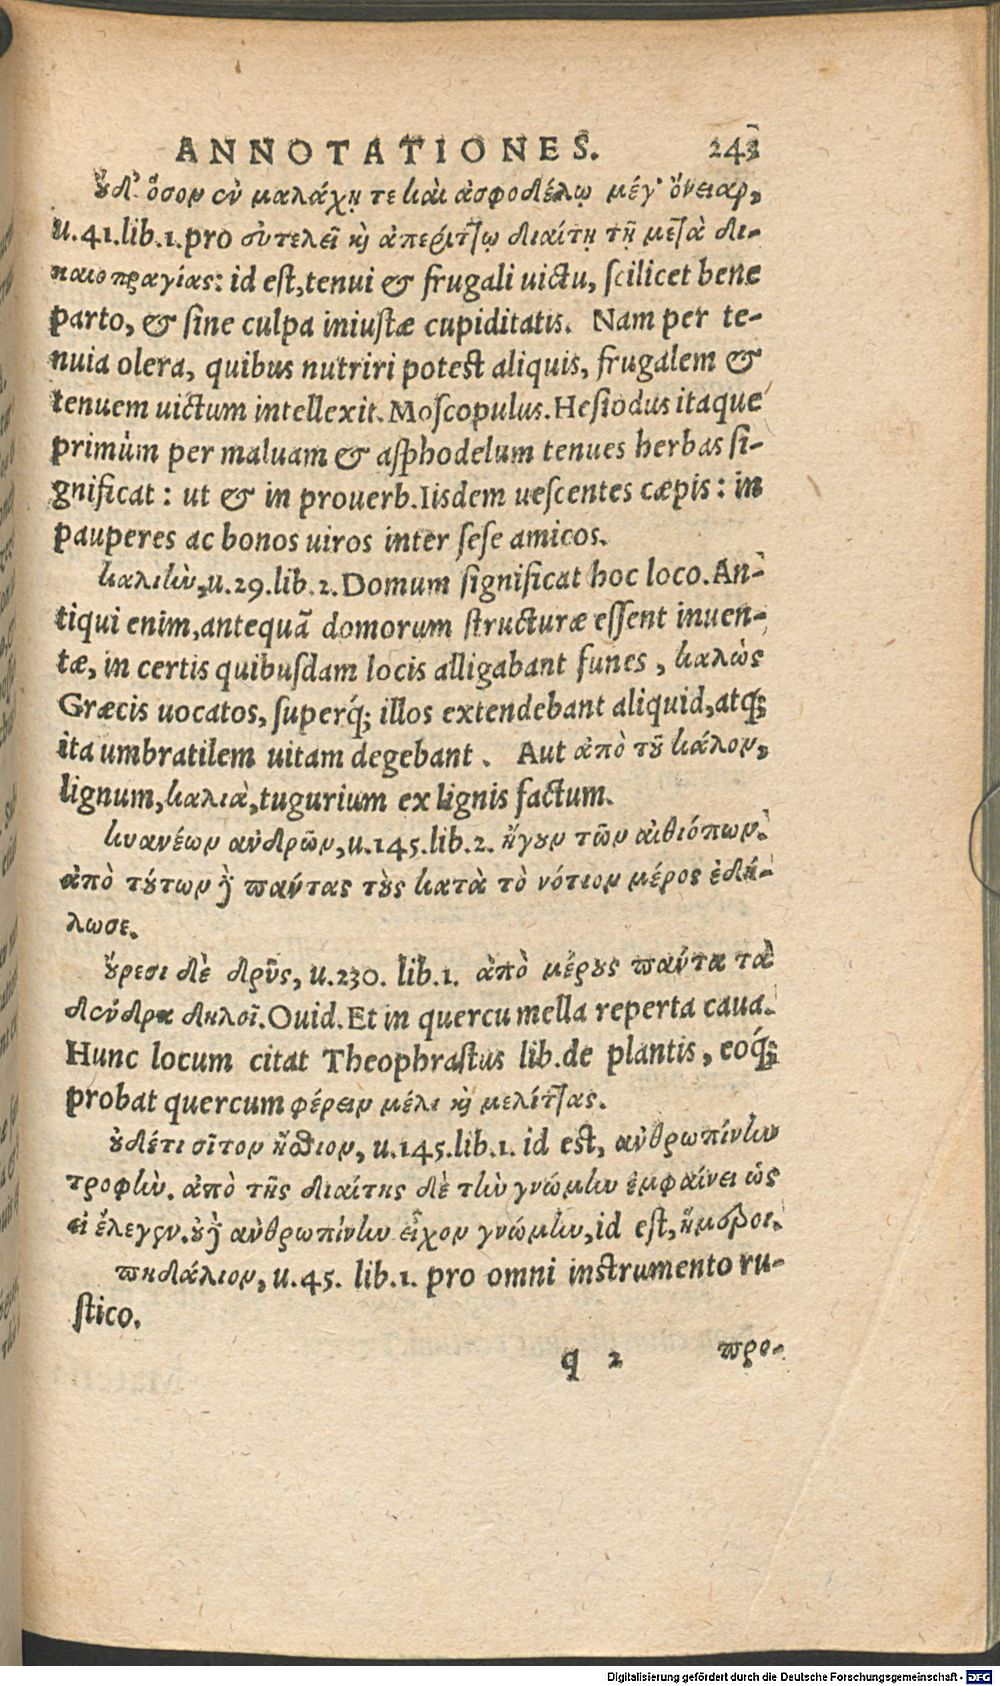 ANNOTATIONES. 243
οὐδ' ὅσον ἐν μαλάχῃ τε καὶ ἀσφοδέλῳ μέγ' ὄνειαρ,
u.41.lib.1.pro εὐτελεῖ καὶ ἀπερίττῳ διαίτῃ τῇ μετὰ δι-
καιοπραγίας: id eſt, tenui & frugali uictu, ſcilicet bene
parto, & ſine culpa iniuſtæ cupiditatis. Nam per te-
nuia olera, quibus nutriri poteſt aliquis, frugalem &
tenuem uictum intellexit. Moſcopulus. Heſiodus itaque
primùm per maluam & aſphodelum tenues herbas ſi-
gnificat: ut & in prouerb. Iiſdem ueſcentes cæpis: in
pauperes ac bonos uiros inter ſeſe amicos.
καλιὴν, u.29.lib.2. Domum ſignificat hoc loco. An-
tiqui enim, antequā domorum ſtructuræ eſſent inuen-
tæ, in certis quibuſdam locis alligabant funes, καλὼς
Græcis uocatos, ſuperq́; illos extendebant aliquid, atq;
ita umbratilem uitam degebant. Aut ἀπὸ τοῦ κάλον,
lignum, καλιὰ, tugurium ex lignis factum.
κυανέων ἀνδρῶν, u.145.lib.2. ἤγουν τῶν αἰθιόπων.
ἀπὸ τούτων γὰρ πάντας τοὺς κατὰ τὸ νότιον μέρος ἐδή-
λωσε.
οὔρεσι δὲ δρῦς, u.230. lib.1. ἀπὸ μέρους πάντα τὰ
δένδρα δηλοῖ. Ouid. Et in quercu mella reperta caua.
Hunc locum citat Theophraſtus lib. de plantis, eoq́;
probat quercum φέρειν μέλι καὶ μελίττας.
οὐδέτι σῖτον ἤσθιον, u.145.lib.1. id eſt, ἀνθρωπίνην
τροφὴν. ἀπὸ τῆς διαίτης δὲ τὴν γνώμην ἐμφαίνει ὡς
εἰ ἔλεγεν. οὐ γὰρ ἀνθρωπίνην εἶχον γνώμην, id eſt, ἥμεροι.
πηδάλιον, u.45. lib.1. pro omni inſtrumento ru-
ſtico.
q 2 προ-
Digitalisierung gefördert durch die Deutsche Forschungsgemeinschaft - DFG